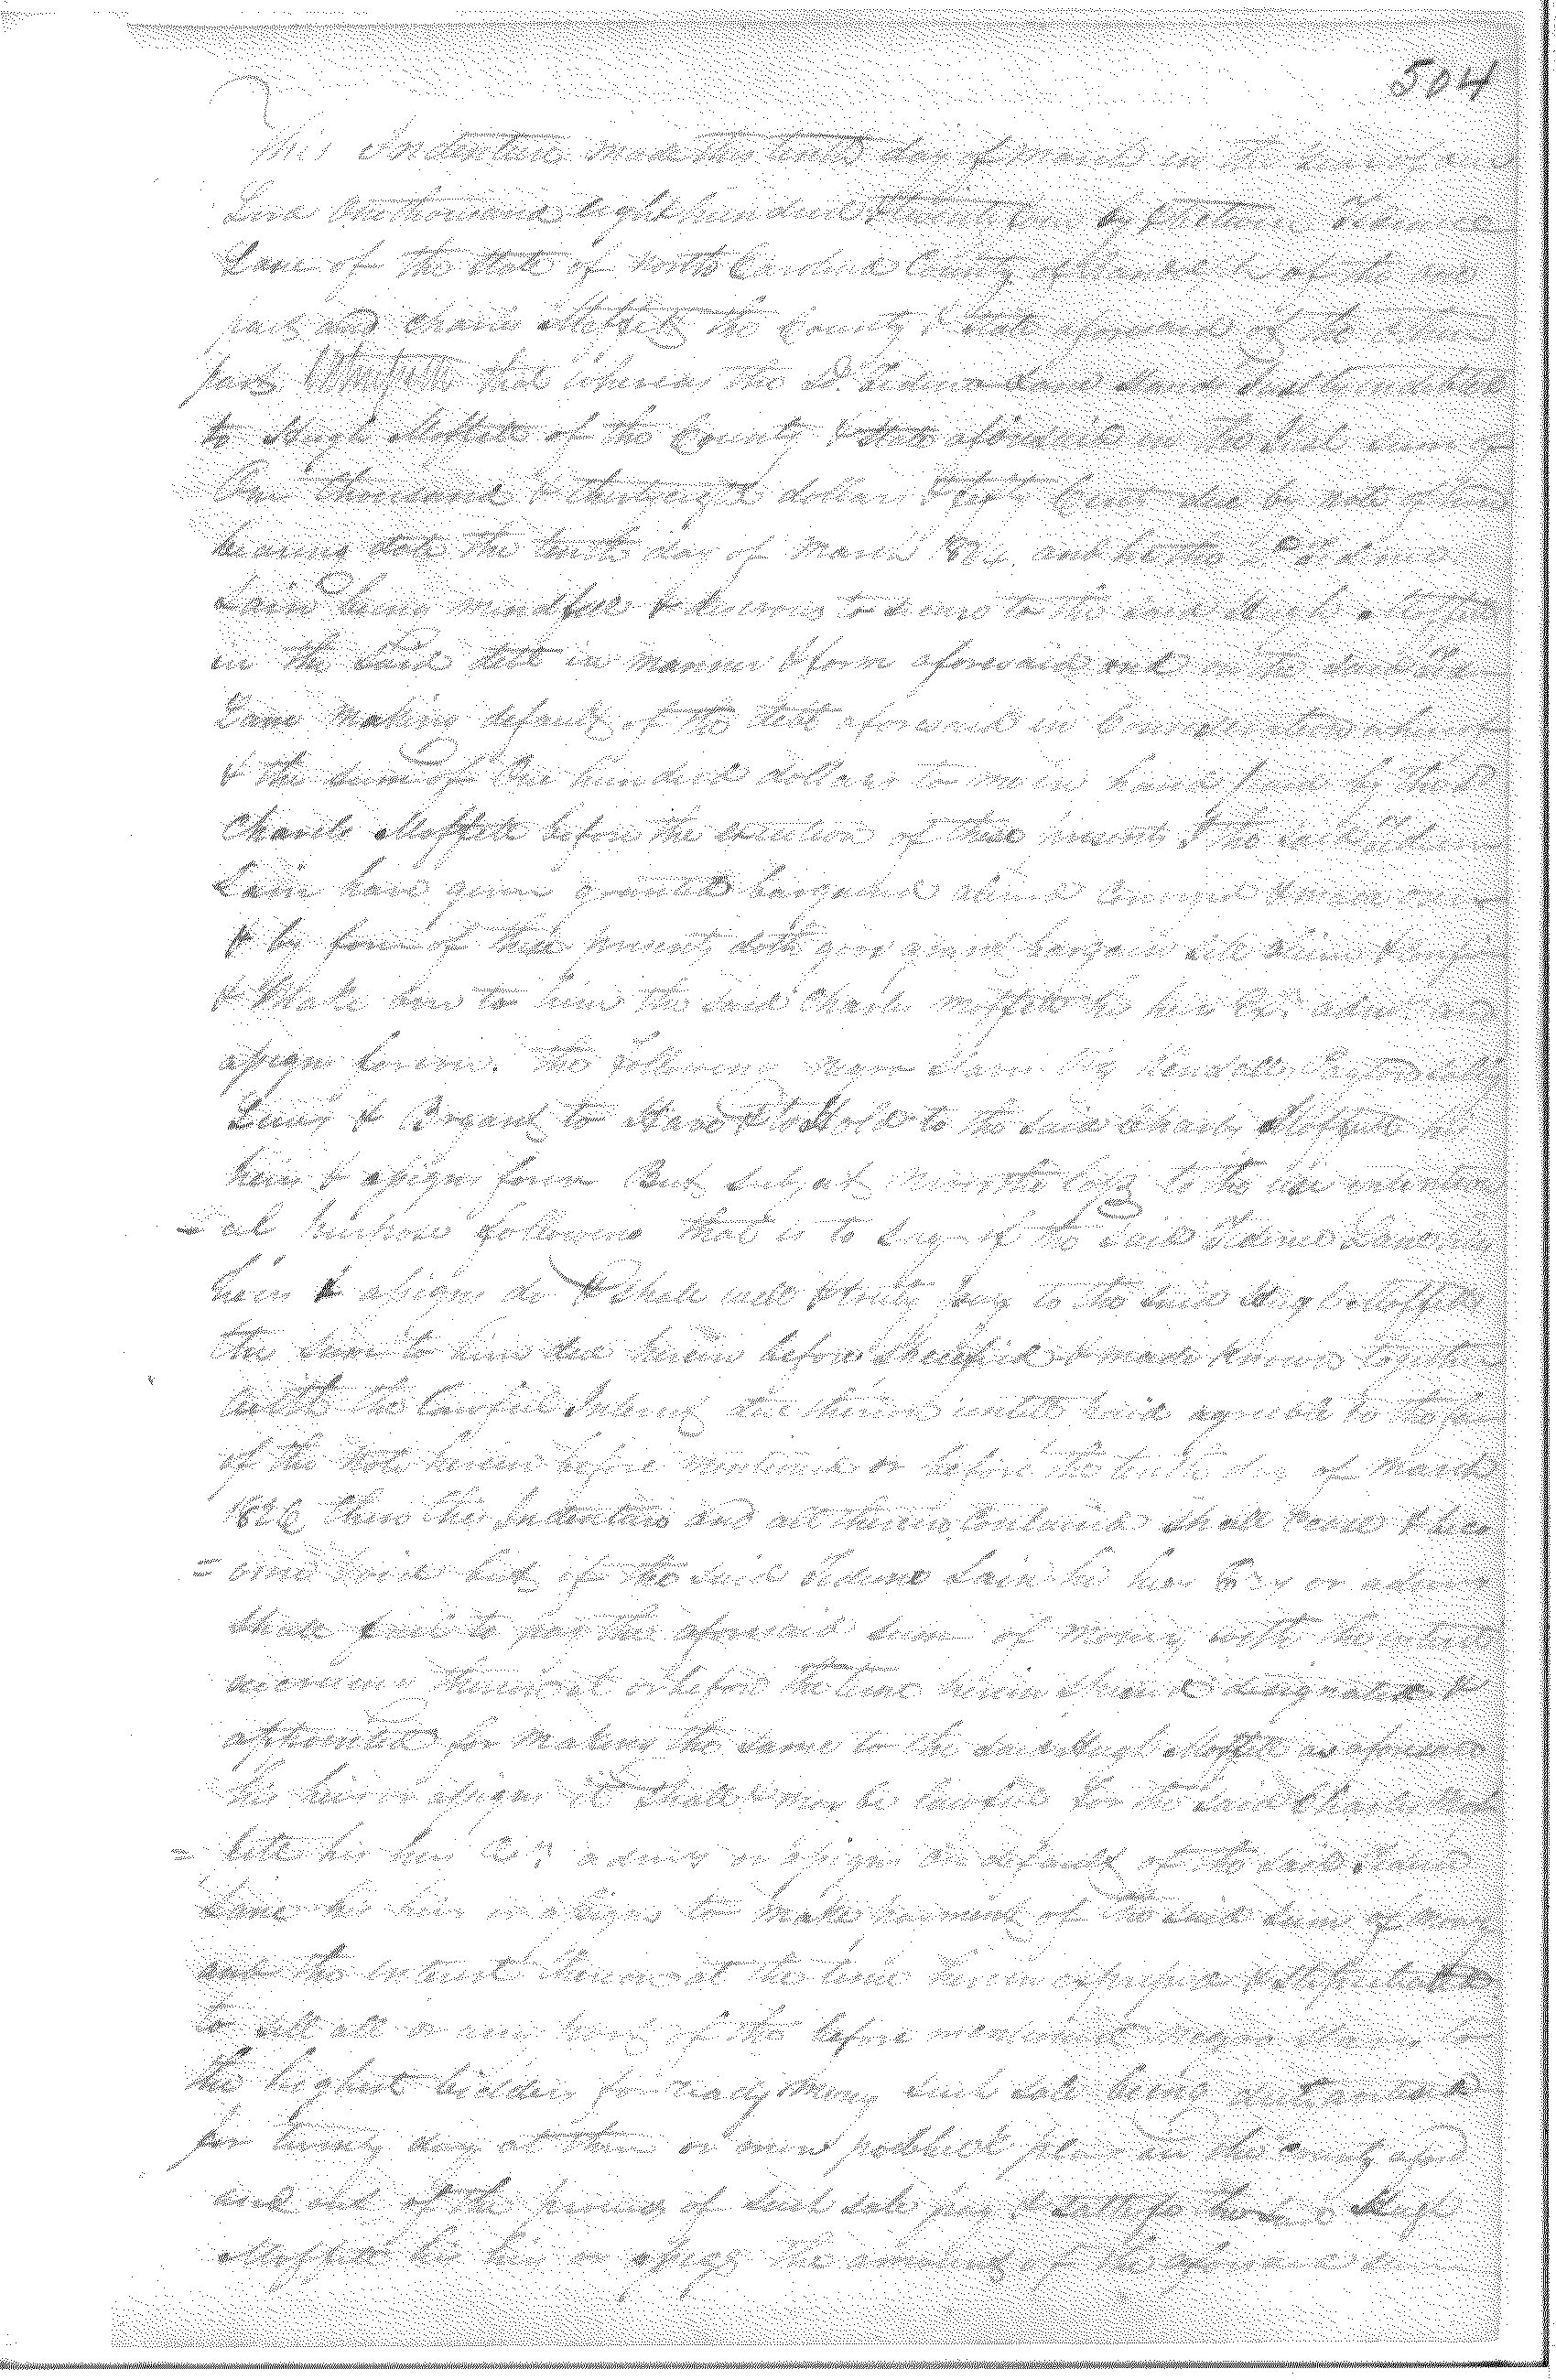 504
This Indenture made this tenth day of March in the year of our
Lord One thousand eight hundred & twenty by & between
Lane of the State of North Carolina County of Randolph of the one
part and Charles Moffitt the County & State aforesaid of the other
part that whereas the Sd. Tidence Lane stands Justly indebted
to Hugh Moffitt of the County & State aforesaid in the Just sum of
One thousand & thirty eight dollars & fifty Cents due by note of hand
bearing date the tenth day of March and he the Sd Tidence
Lain being mindfull & desirous to secure to the said Hugh Moffitt
in the said debt in manner & form aforesaid and on the said
Lane making default of the debt aforesaid in Consideration whereof
& the sum of One hundred dollars to me in hand paid by the Sd
Charles Moffitt before the execution of these presents I the said Tidence
Lain have given granted bargained aliend Conveyed & made over
& by force of these presents doth give grant bargain sell alien & Convey
& Make over to him the said Charles Moffitt his heirs Exrs admrs and
assigns forever. the following negro slaves Viz Kendall, Payton
Lucy & Bryant to Have & to Hold to the said Charles Moffitt his
heirs & assigns forever But subject Nevertheless to the use intention
= al purpose following that is to say if the said Tidence Lane his
heirs & assigns do & shall well & truly pay to the said Hugh Moffitt
the sum to him due herein before Specified & made known together
with the lawful Interest due thereon untill paid agreeable to the
of the Note herein before mentioned or before the tenth day of March
1826 then this Indenture and all therein Contained shall cease & bec
= ome void but if the said Tidence Lain his heirs Exrs or admrs
shall fail to pay the aforesaid sum of money with the interest
accruing thereon at or before the time herein Specified designated &
appointed for making the same to the said Hugh Moffitt as aforesaid
his heirs or assigns it shall & may be lawful for the said Charles Mof
= fitt his heirs Exrs admrs or assigns on default of the said Tidence
Lane his heirs or assigns to make payment of the said sum of money
and the interest thereon at the time herein expressed & stipulated
to sell all or any part of the before mentioned negro slaves to
the highest bidder for ready money such sale being
for twenty days at three or more publick places in the County afsd
and out of the proceeds of such sale pay & satisfy the Hugh
Moffitt his heirs or assigns the amount of the aforesaid